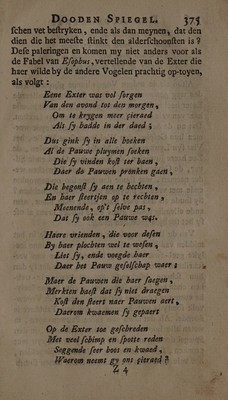 DOODEN SPIEGEL. 375
schen vet bestryken, ende als dan meynen, dat den
dien die het meeste stinkt den alderschoonsten is?
Dese paleringen en komen my niet anders voor als
de Fabel van Esophus, vertellende van de Exter die
haer wilde by de andere Vogelen prachtig op-toyen,
als volgt:
Eene Exter was vol sorgen
Van den avond tot den morgen,
Om te krygen meer cieraed
Als sy hadde in der daed;
Dus gink sy in alle hoeken
Al de Pauwe pluymen soeken
Die sy vinden kost ter baen,
Daer de Pauwen pronken gaen,
Die begonst sy aen te hechten,
En haer steertjen op te rechten,
Meenende, op't selve pas,
Dat sy ook een Pauwe was.
Haere vrienden, die voor desen
By haer plochten wel te wesen,
Liet sy, ende voegde haer
Daer het Pauw geselschap waer;
Maer de Pauwen die haer saegen,
Merkten haest dat sy niet draegen
Kost den steert naer Pauwen aert,
Daerom kwaemen sy gepaert
Op de Exter toe geschreden
Met veel schimp en spotte reden
Seggende seer boos en kwaed,
Waerom neemt gy ons cieraed?
Z 4